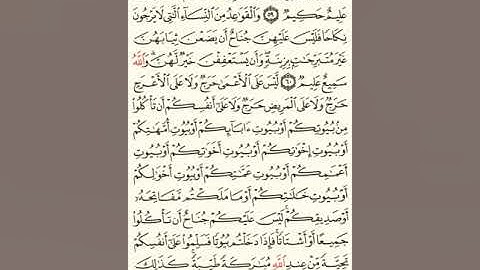 عَلِيمٌ حَكِيمٌ ۝٥٩ وَٱلْقَوَٰعِدُ مِنَ ٱلنِّسَآءِ ٱلَّٰتِى لَا يَرْجُونَ
نِكَاحًا فَلَيْسَ عَلَيْهِنَّ جُنَاحٌ أَن يَضَعْنَ ثِيَابَهُنَّ
غَيْرَ مُتَبَرِّجَٰتٍۭ بِزِينَةٍ ۖ وَأَن يَسْتَعْفِفْنَ خَيْرٌ لَّهُنَّ ۗ وَٱللَّهُ
سَمِيعٌ عَلِيمٌ ۝٦٠ لَّيْسَ عَلَى ٱلْأَعْمَىٰ حَرَجٌ وَلَا عَلَى ٱلْأَعْرَجِ
حَرَجٌ وَلَا عَلَى ٱلْمَرِيضِ حَرَجٌ وَلَا عَلَىٰٓ أَنفُسِكُمْ أَن تَأْكُلُوا۟
مِنۢ بُيُوتِكُمْ أَوْ بُيُوتِ ءَابَآئِكُمْ أَوْ بُيُوتِ أُمَّهَٰتِكُمْ
أَوْ بُيُوتِ إِخْوَٰنِكُمْ أَوْ بُيُوتِ أَخَوَٰتِكُمْ أَوْ بُيُوتِ
أَعْمَٰمِكُمْ أَوْ بُيُوتِ عَمَّٰتِكُمْ أَوْ بُيُوتِ أَخْوَٰلِكُمْ
أَوْ بُيُوتِ خَٰلَٰتِكُمْ أَوْ مَا مَلَكْتُم مَّفَاتِحَهُۥٓ
أَوْ صَدِيقِكُمْ ۚ لَيْسَ عَلَيْكُمْ جُنَاحٌ أَن تَأْكُلُوا۟
جَمِيعًا أَوْ أَشْتَاتًا ۚ فَإِذَا دَخَلْتُم بُيُوتًا فَسَلِّمُوا۟ عَلَىٰٓ أَنفُسِكُمْ
تَحِيَّةً مِّنْ عِندِ ٱللَّهِ مُبَٰرَكَةً طَيِّبَةً ۚ كَذَٰلِكَ